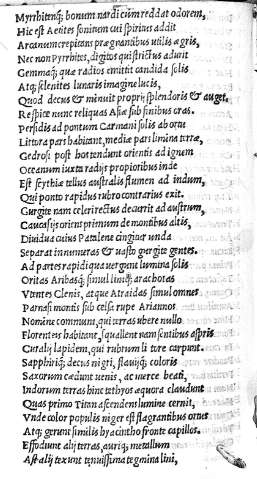 Myrrhitenq; bonum nardicum reddat odorem,
Hic est Aetites sonitum cui spiritus addit
Arcanum crepitans prægnantibus utilis ægris,
Nec non Pyrrhites, digitos qui strictus adurit
Gemmaq; quæ radios emittit candida solis
Atq; selenites lunaris imagine lucis,
Quod decus & minuit proprij splendoris & auget.
Respice nunc reliquas Asiæ sub finibus oras.
Persidis ad pontum Carmani solis ab ortu
Littora pars habitant, mediæ pars limina terræ,
Gedrosi post hos tendunt orientis ad ignem
Oceanum iuxta radijs propioribus inde
Est scythiæ tellus australis flumen ad indum,
Qui ponto rapidus rubro contrarius exit.
Gurgite nam celeri rectus decurrit ad austrum,
Caucasijs oriens primum de montibus altis,
Diuidua cuius Patalene cingitur unda
Separat innumeras & uasto gurgite gentes.
Ad partes rapidi qua uergunt lumina solis
Oritas Aribasq; simul linidq; arachotas
Vtentes Clenis, atque Atraidas simul omnes
Parnasi montis sub celsa rupe Ariannos
Nomine communi, qui terras ubere nullo
Florentes habitant, squallent nam sentibus aspris
Curalij lapidem, qui rubrum litore carpunt.
Sapphiriq; decus nigri, flauiq; coloris
Saxorum cædunt uenis, ac merce beati,
Indorum terras hinc tethyos æquora claudunt
Quas primo Titan ascendens lumine cernit,
Vnde color populis niger est flagrantibus ortus
Atq; gerunt similis hyacintho fronte capillos.
Effodiunt alij terras, auriq; metallum
Ast alij texunt tenuissima tegmina lini,